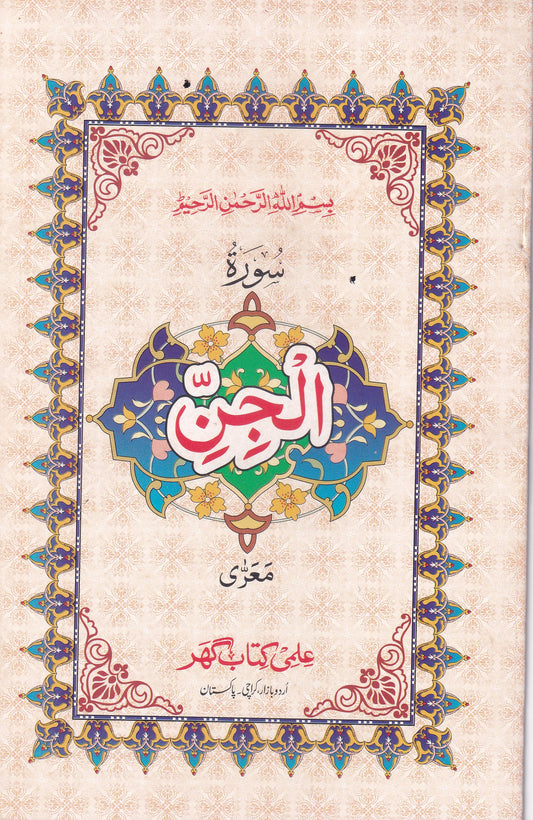 بِسْمِ اللّٰهِ الرَّحْمٰنِ الرَّحِيْمِ
سُوْرَةُ
الْجِنِّ
مَعَرّٰی
عِلمِی کِتَاب گھَر
اُردو بازار، کراچی۔ پاکستان